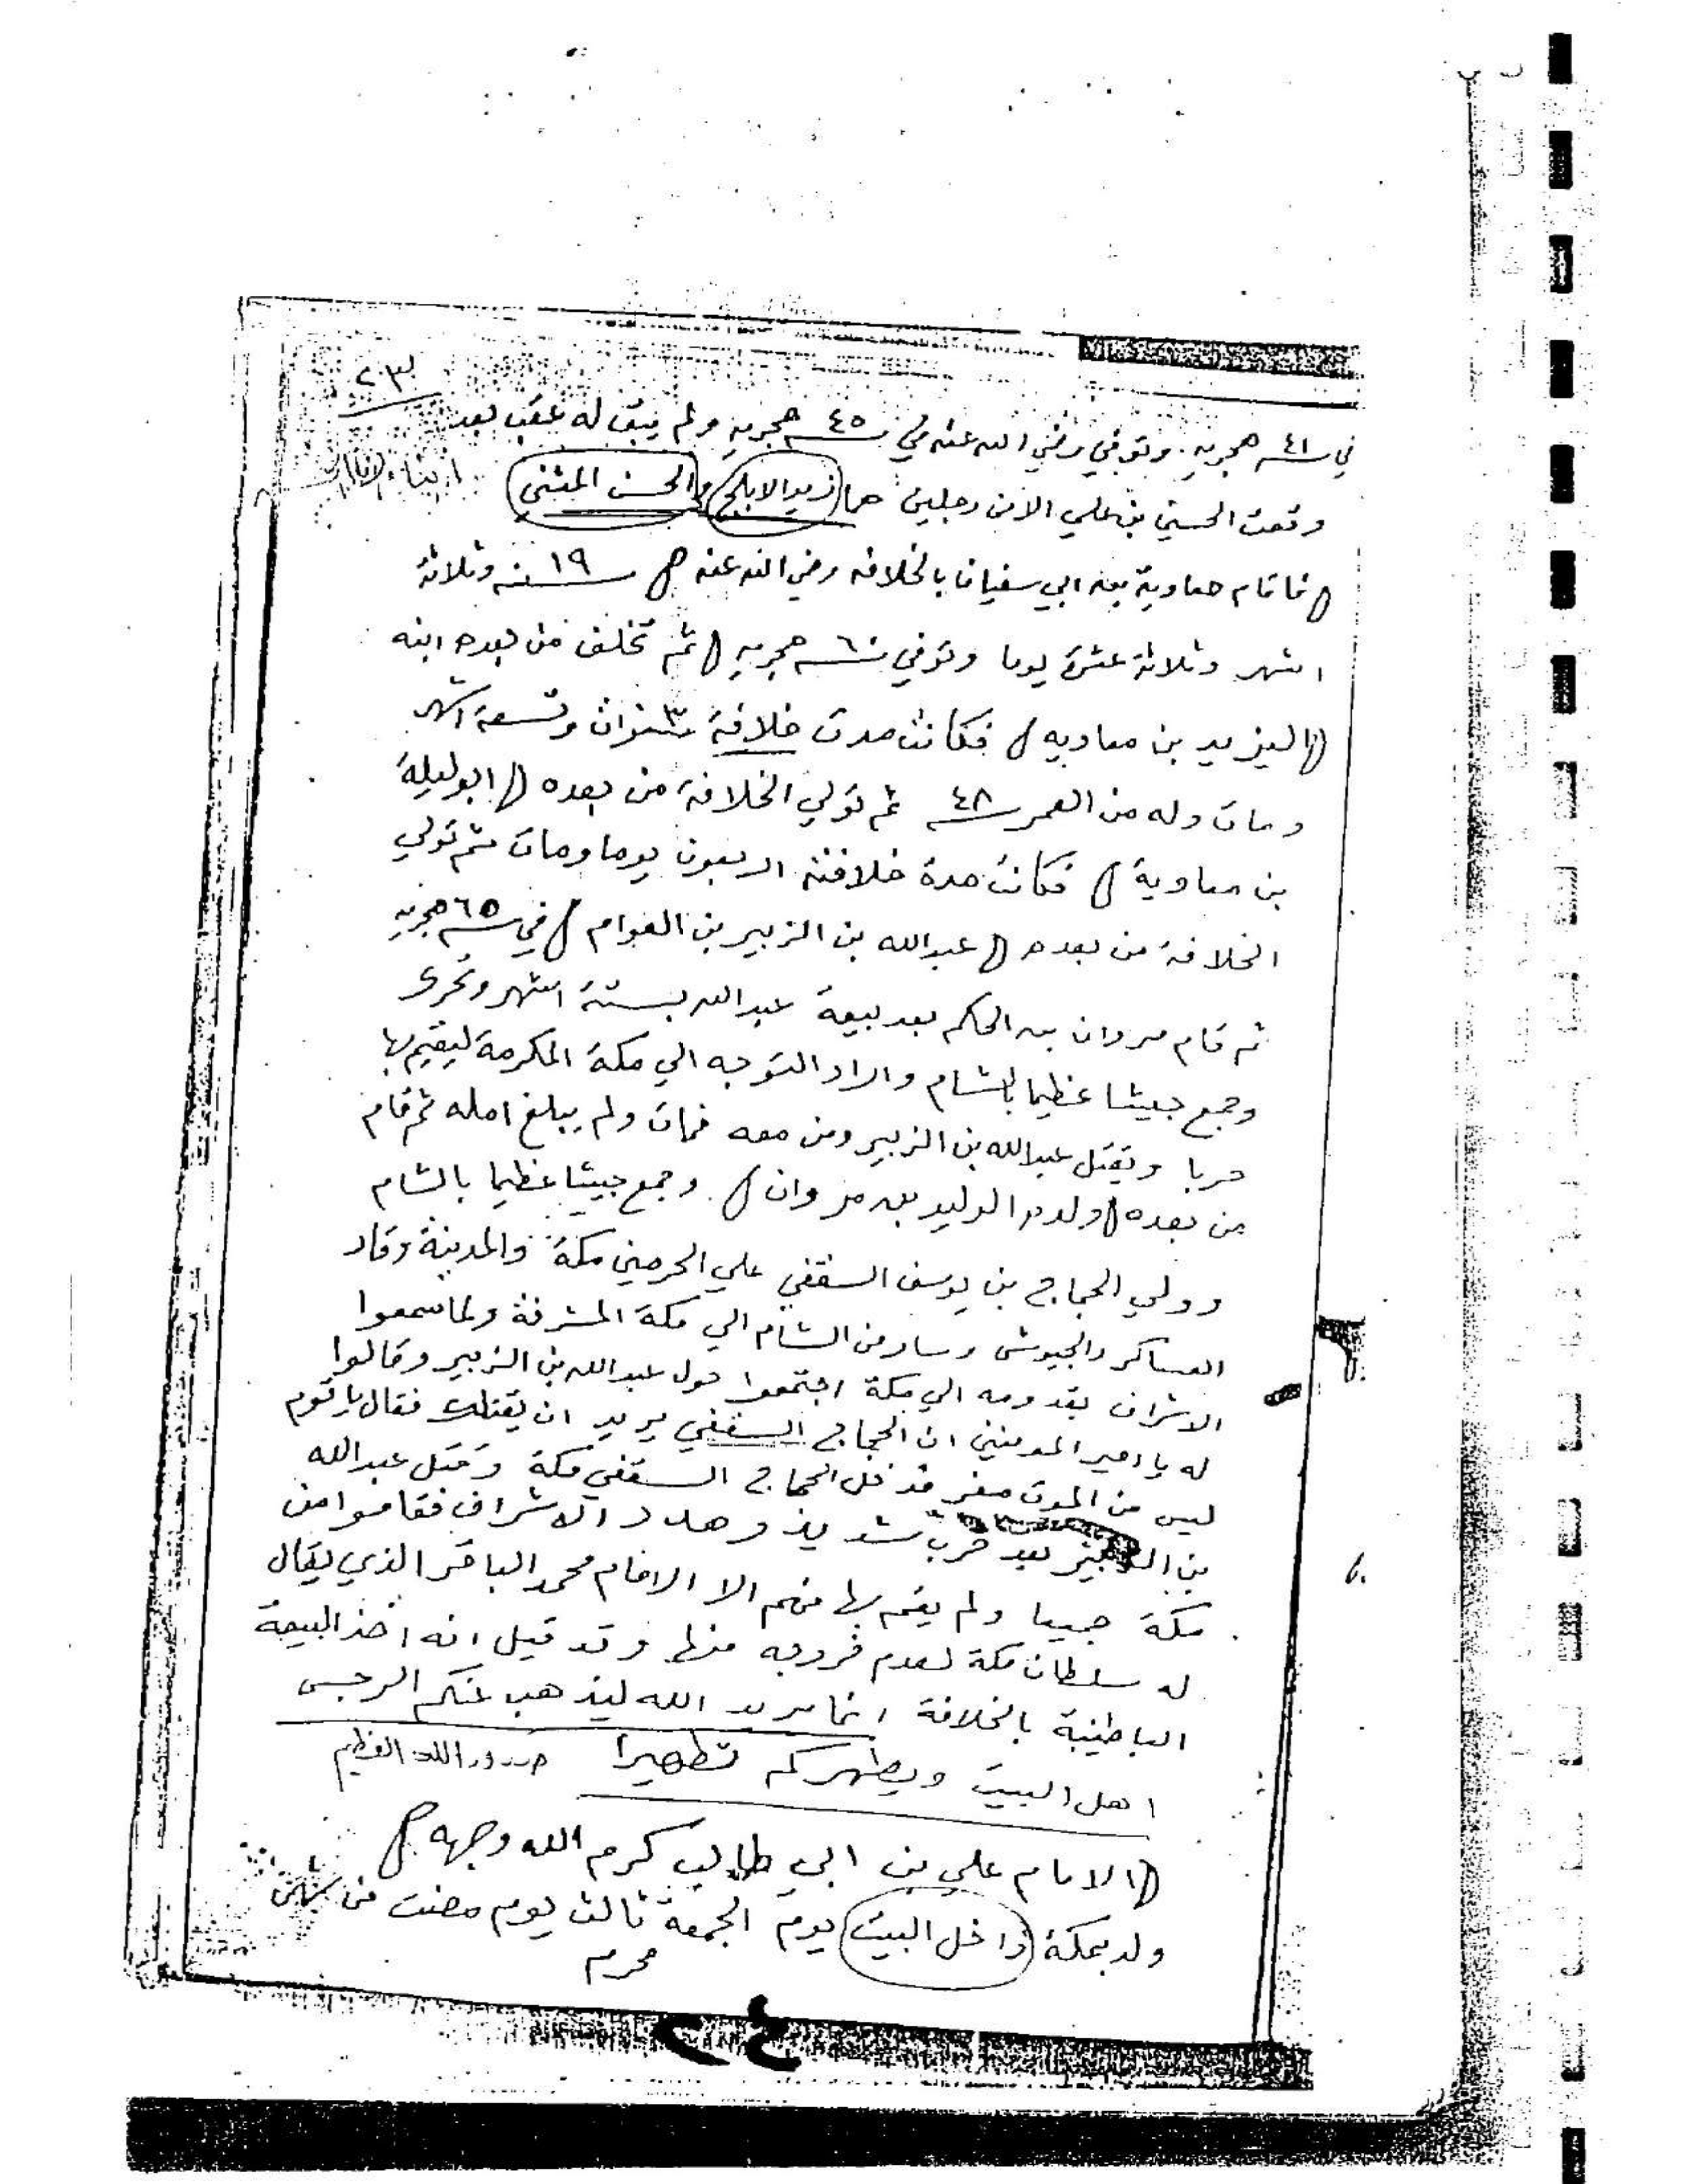 ٢٣
في سنة ٤١ هجريه. وتوفي رضي الله عنه في سنة ٤٥ هجريه ولم يبق له عقب بعد
وقعت الحسين بن علي الا من رجلين هما (زيد الابلج) و(الحسن المثني)
( فاقام معاوية بن ابي سفيان بالخلافه رضي الله عنه ) ١٩ سنه وثلاثة
اشهر وثلاثة عشرة يوما وتوفي سنة ٦٠ هجريه ( ثم تخلف من بعده ابنه
( اليزيد بن معاويه ) فكانت مدت خلافة ٣ سنوات وتسعة اشهر
ومات وله من العمر سنة ٤٨ ثم تولي الخلافة من بعده ( ابو ليلة
بن معاوية ) فكانت مدة خلافته اربعون يوما ومات ثم تولي
الخلافة من بعده ( عبدالله بن الزبير بن العوام ) في سنة ٦٥ هجريه
ثم قام مروان بن الحكم بعد بيعة عبدالله بستة اشهر وتحرى
وجمع جيشا عظيما بالشام واراد التوجه الي مكة المكرمة ليقيم بها
حربا ويقتل عبدالله بن الزبير ومن معه فمات ولم يبلغ امله ثم قام
من بعده ( ولده الوليد بن مروان ) وجمع جيشا عظيما بالشام
وولي الحجاج بن يوسف السقفي علي الحرمين مكة والمدينة وقاد
العساكر والجيوش وسار من الشام الي مكة المشرفة ولما سمعوا
الاشراف بقدومه الي مكة اجتمعوا حول عبدالله بن الزبير وقالوا
له يا امير المومنين ان الحجاج السقفي يريد ان يقتلك فقال يا قوم
ليس من الموت مفر فدخل الحجاج السقفي مكة وقتل عبدالله
بن الزبير بعد حرب شديد وهدد الاشراف فقاموا من
مكة جميعا ولم يقم بها منهم الا الامام محمد الباقر الذي يقال
له سلطان مكة لعدم خروجه منها وقد قيل انه اخذ البيعة
الباطنية بالخلافة انما يريد الله ليذهب عنكم الرجس
اهل البيت ويطهركم تطهيرا صدق الله العظيم
( الامام علي بن ابي طالب كرم الله وجهه )
ولد بمكة (داخل البيت) يوم الجمعة ثالث يوم مضت من شهر
محرم